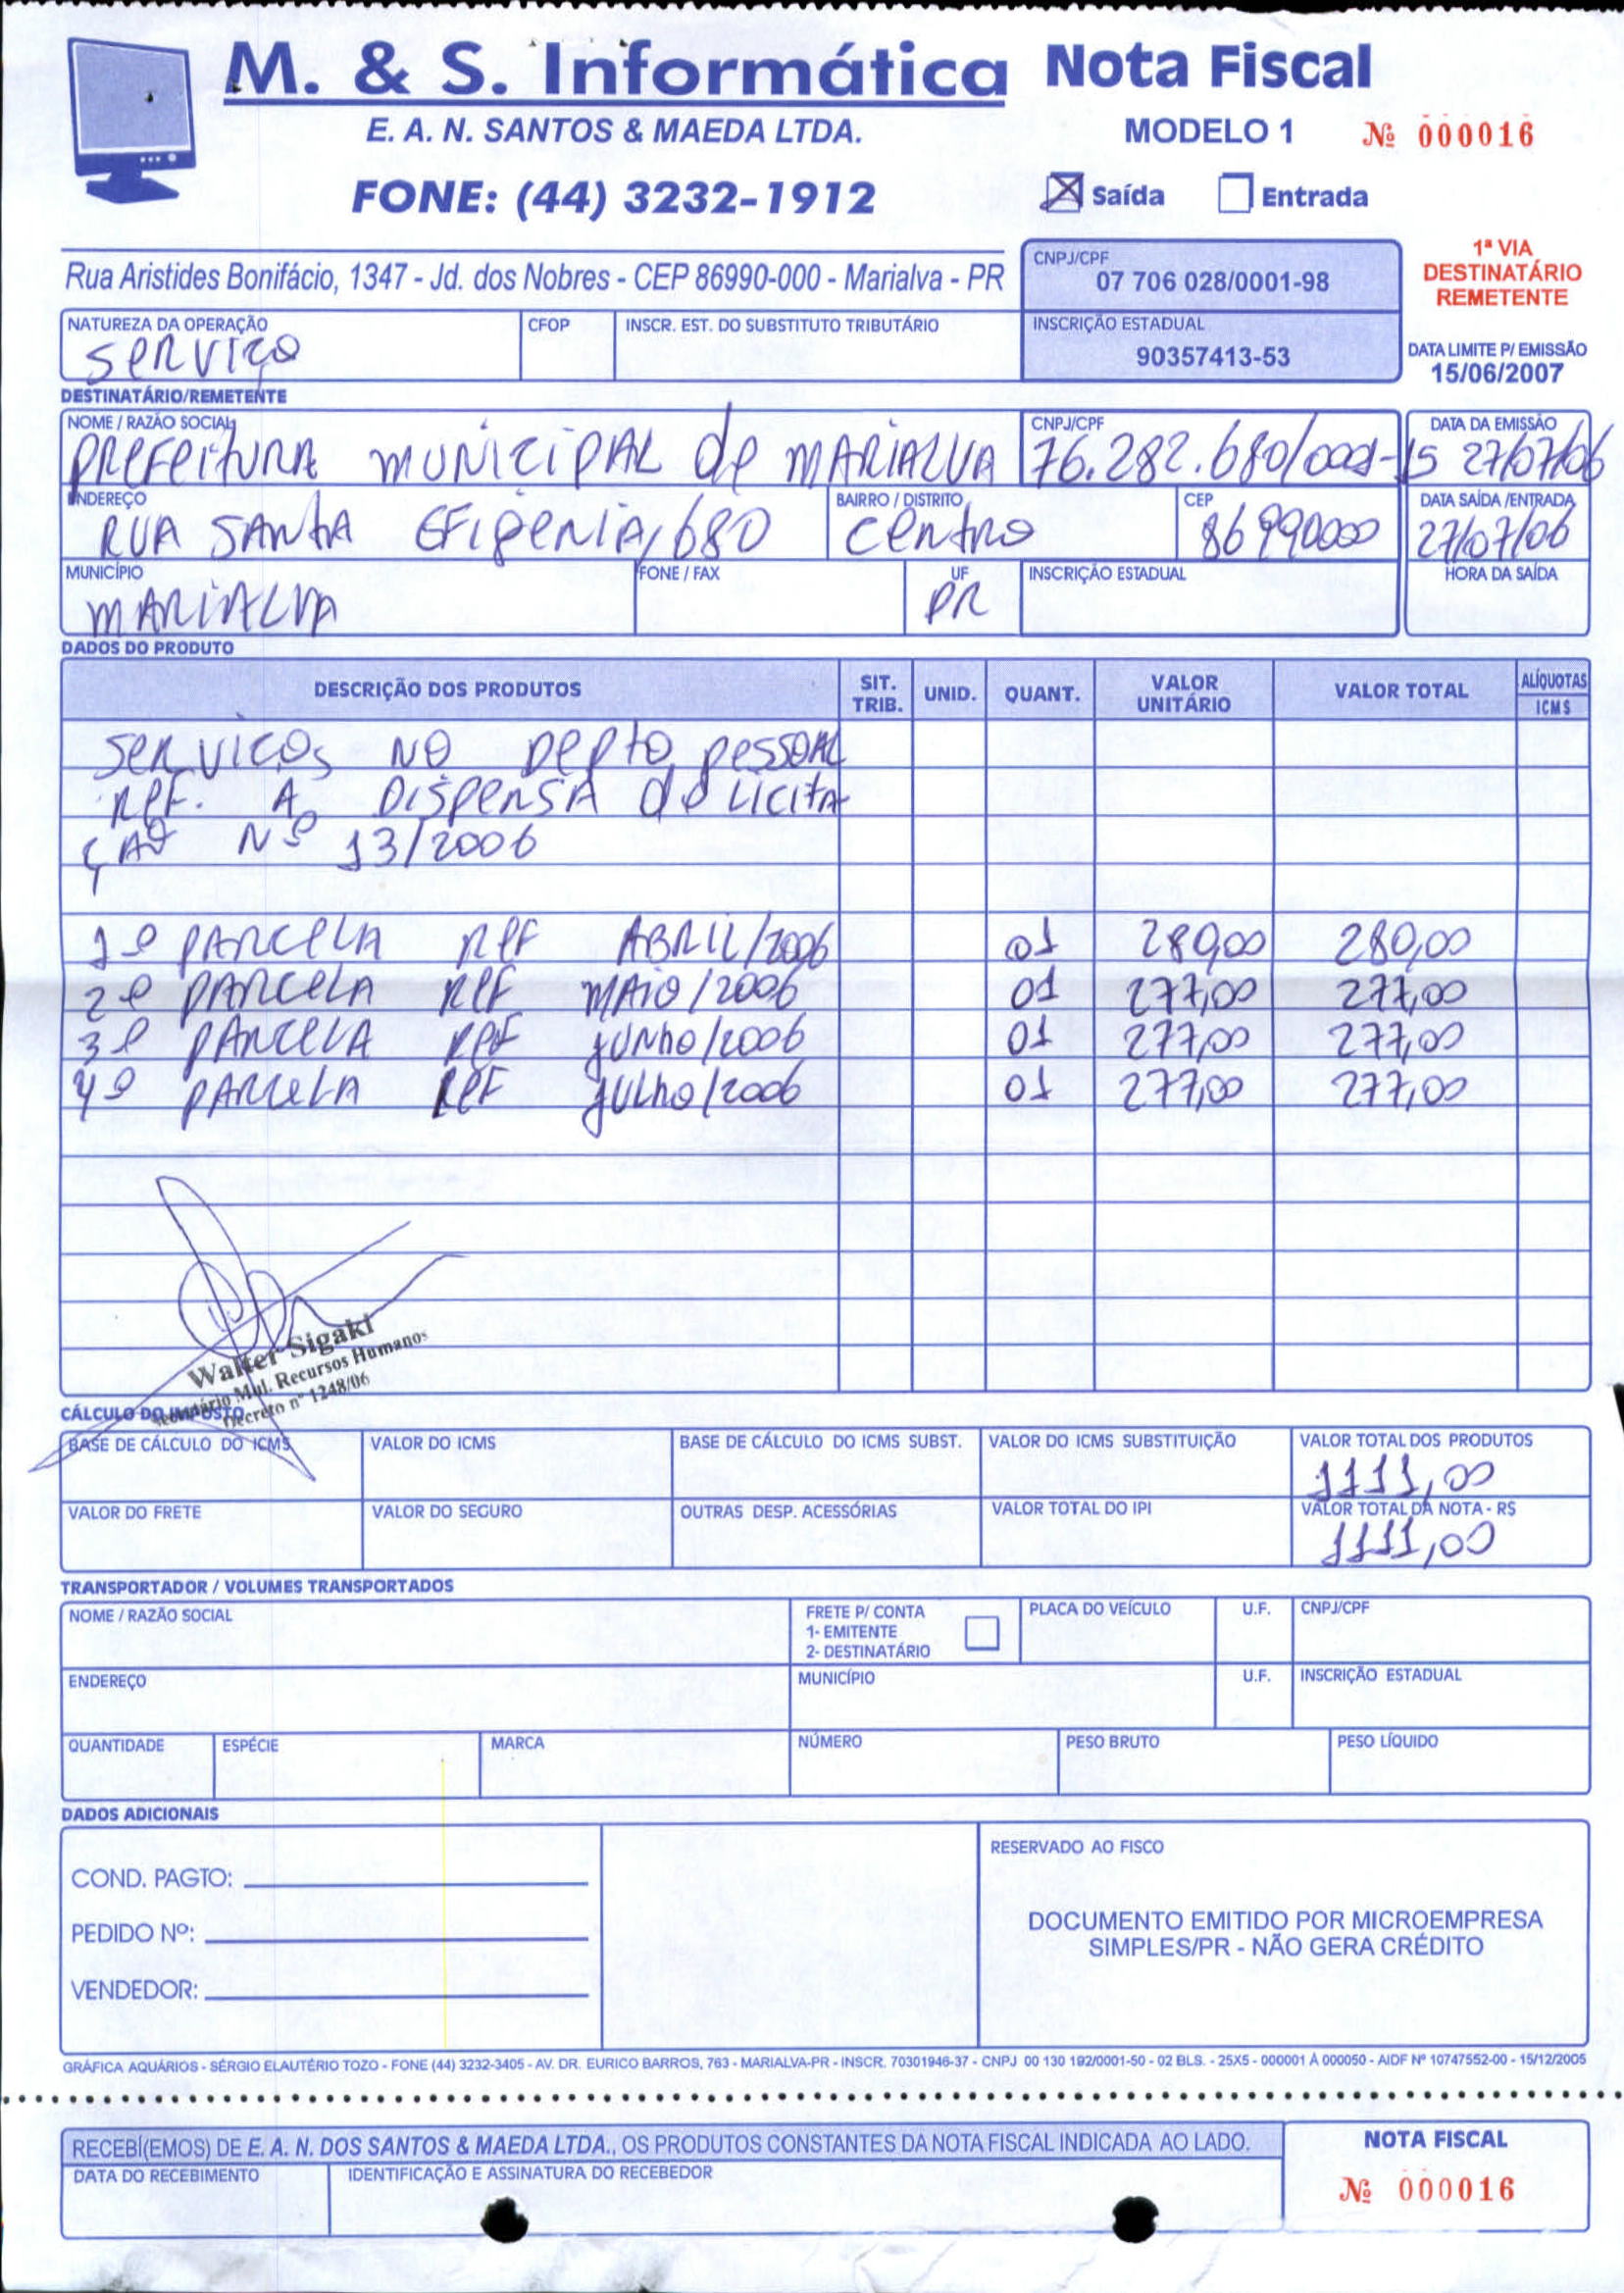 M. & S. Informática Nota Fiscal
E. A. N. SANTOS & MAEDA LTDA. MODELO 1 Nº 000016
FONE: (44) 3232-1912 X Saída Entrada
Rua Aristides Bonifácio, 1347 - Jd. dos Nobres - CEP 86990-000 - Marialva - PR
CNPJ/CPF
07 706 028/0001-98
INSCRIÇÃO ESTADUAL
90357413-53
1ª VIA
DESTINATÁRIO
REMETENTE
DATA LIMITE P/ EMISSÃO
15/06/2007
NATUREZA DA OPERAÇÃO CFOP INSCR. EST. DO SUBSTITUTO TRIBUTÁRIO
Serviço
DESTINATÁRIO/REMETENTE
NOME / RAZÃO SOCIAL CNPJ/CPF DATA DA EMISSÃO
PREFEITURA MUNICIPAL de MARIALVA 76.282.680/0001-15 27/07/06
ENDEREÇO BAIRRO / DISTRITO CEP DATA SAÍDA /ENTRADA
RUA SANTA EFIGENIA, 680 Centro 86990000 27/07/06
MUNICÍPIO FONE / FAX UF INSCRIÇÃO ESTADUAL HORA DA SAÍDA
MARIALVA PR
DADOS DO PRODUTO
DESCRIÇÃO DOS PRODUTOS SIT. TRIB. UNID. QUANT. VALOR UNITÁRIO VALOR TOTAL ALÍQUOTAS ICMS
Serviços NO Depto pessoAL
Ref. A Dispensa de Licita
ção Nº 13/2006
1º PARCELA Ref ABRIL/2006 01 280,00 280,00
2º PARCELA Ref MAIO/2006 01 277,00 277,00
3º PARCELA Ref junho/2006 01 277,00 277,00
4º PARCELA Ref julho/2006 01 277,00 277,00
Walter Sigaki
Secretário Mul. Recursos Humanos
Decreto nº 1248/06
CÁLCULO DO IMPOSTO
BASE DE CÁLCULO DO ICMS VALOR DO ICMS BASE DE CÁLCULO DO ICMS SUBST. VALOR DO ICMS SUBSTITUIÇÃO VALOR TOTAL DOS PRODUTOS
1111,00
VALOR DO FRETE VALOR DO SEGURO OUTRAS DESP. ACESSÓRIAS VALOR TOTAL DO IPI VALOR TOTAL DA NOTA - R$
1111,00
TRANSPORTADOR / VOLUMES TRANSPORTADOS
NOME / RAZÃO SOCIAL FRETE P/ CONTA PLACA DO VEÍCULO U.F. CNPJ/CPF
1- EMITENTE
2- DESTINATÁRIO
ENDEREÇO MUNICÍPIO U.F. INSCRIÇÃO ESTADUAL
QUANTIDADE ESPÉCIE MARCA NÚMERO PESO BRUTO PESO LÍQUIDO
DADOS ADICIONAIS
COND. PAGTO:
PEDIDO Nº:
VENDEDOR:
RESERVADO AO FISCO
DOCUMENTO EMITIDO POR MICROEMPRESA
SIMPLES/PR - NÃO GERA CRÉDITO
GRÁFICA AQUÁRIOS - SÉRGIO ELAUTÉRIO TOZO - FONE (44) 3232-3405 - AV. DR. EURICO BARROS, 763 - MARIALVA-PR - INSCR. 70301946-37 - CNPJ 00 130 192/0001-50 - 02 BLS. - 25X5 - 000001 À 000050 - AIDF Nº 10747552-00 - 15/12/2005
RECEBI(EMOS) DE E. A. N. DOS SANTOS & MAEDA LTDA., OS PRODUTOS CONSTANTES DA NOTA FISCAL INDICADA AO LADO.
DATA DO RECEBIMENTO IDENTIFICAÇÃO E ASSINATURA DO RECEBEDOR
NOTA FISCAL
Nº 000016